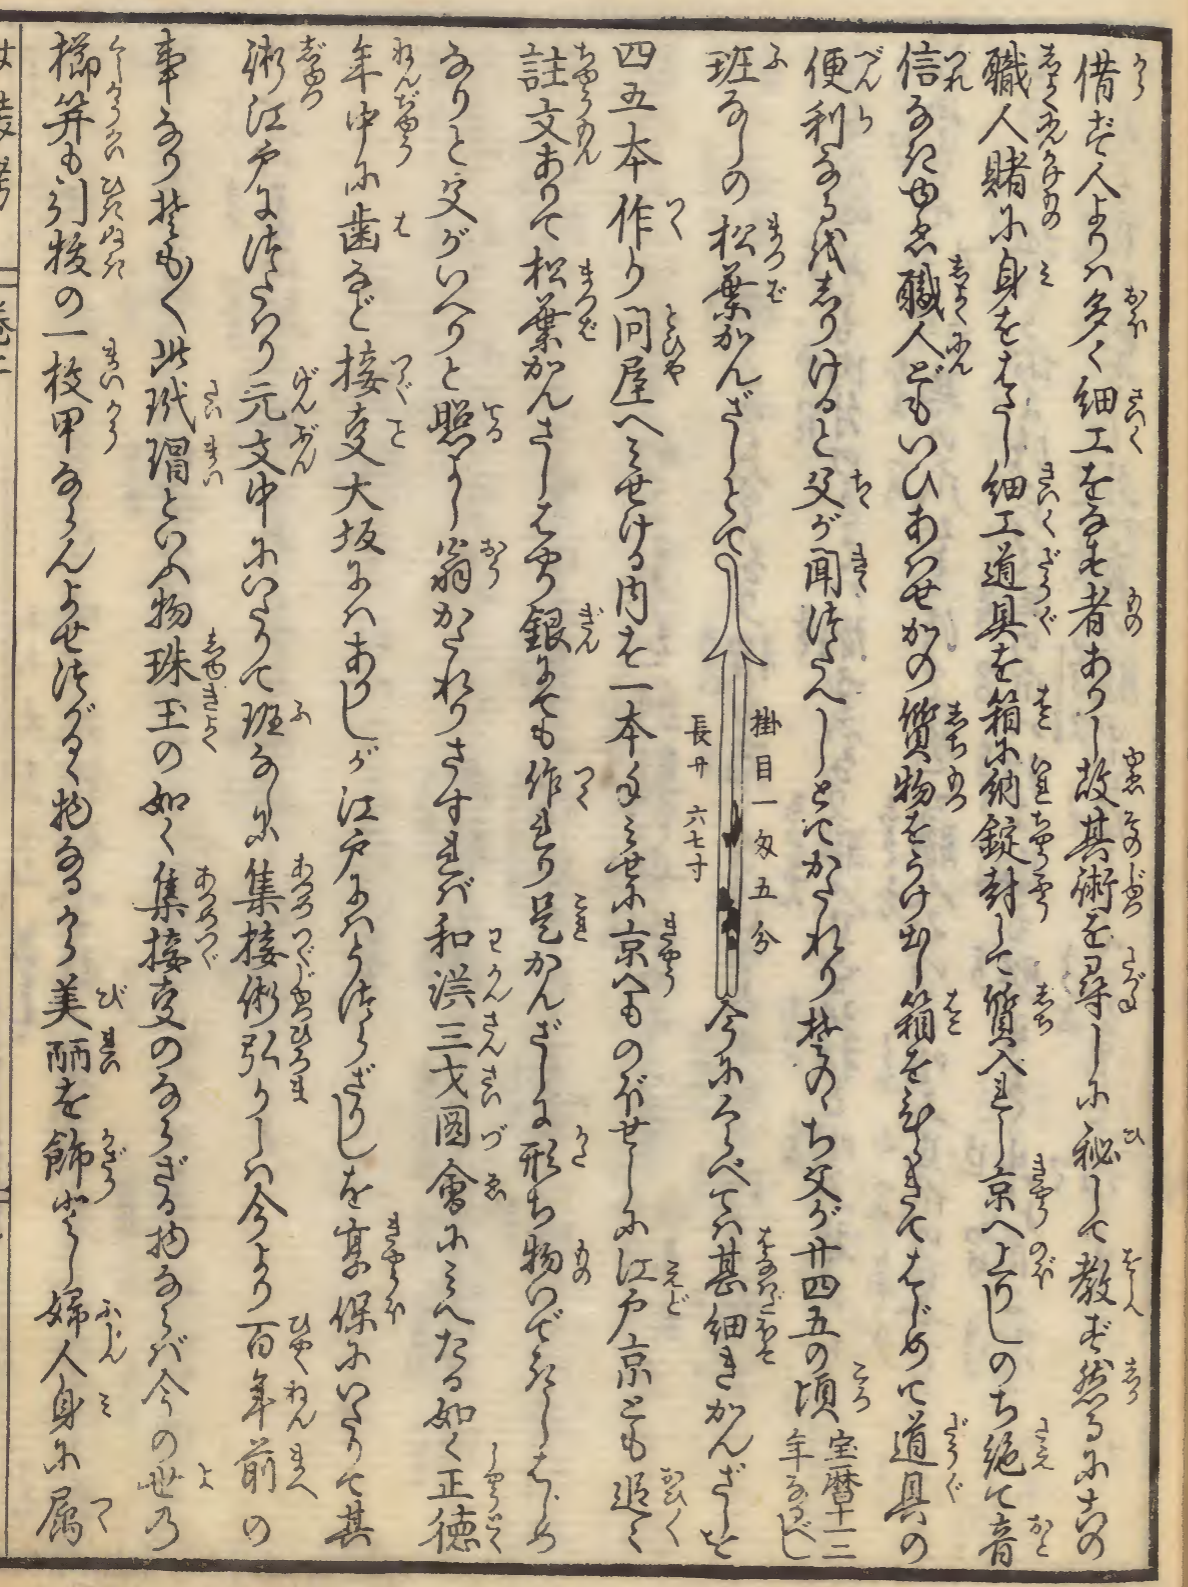 借ず人よりハ多く細工をなす者ありし故其術を尋しに秘して教ず然るに右の
職人賭に身をはたし細工道具を箱に納錠封して質入れし京へ上りしのち絶て音
信なきゆゑ職人どもいひあハせかの質物をうけ出し箱をひらきてはじめて道具の
便利なるをしりけると父が聞伝へしとてかたれり其のち父が廿四五の頃宝暦十一二年なるべし
斑なしの松葉かんざしとて
掛目一匁五分
長サ六七寸
今にくらべてハ甚細きかんざしを
四五本作り問屋へみせける内を一本みせに京へものぼせしに江戸京とも追々
註文ありて松葉かんざしはやり銀にても作れり是かんざしに形ち物いできしはじめ
なりと父がいへりと照よし翁かたれりさすれバ和漢三才図会にみへたる如く正徳
年中に歯など接事大坂にハありしが江戸にハつたハらざりしを享保にいたりて其
術江戸に伝ハり元文中にいたりて斑なしに集接術弘りしハ今より百年前の
事なり抑もく此玳瑁といふ物珠玉の如く集接事のならざる物ならバ今の世の
櫛笄も引抜の一枚甲ならんよせつがるゝ物なるから美麗を飾とし婦人身に属